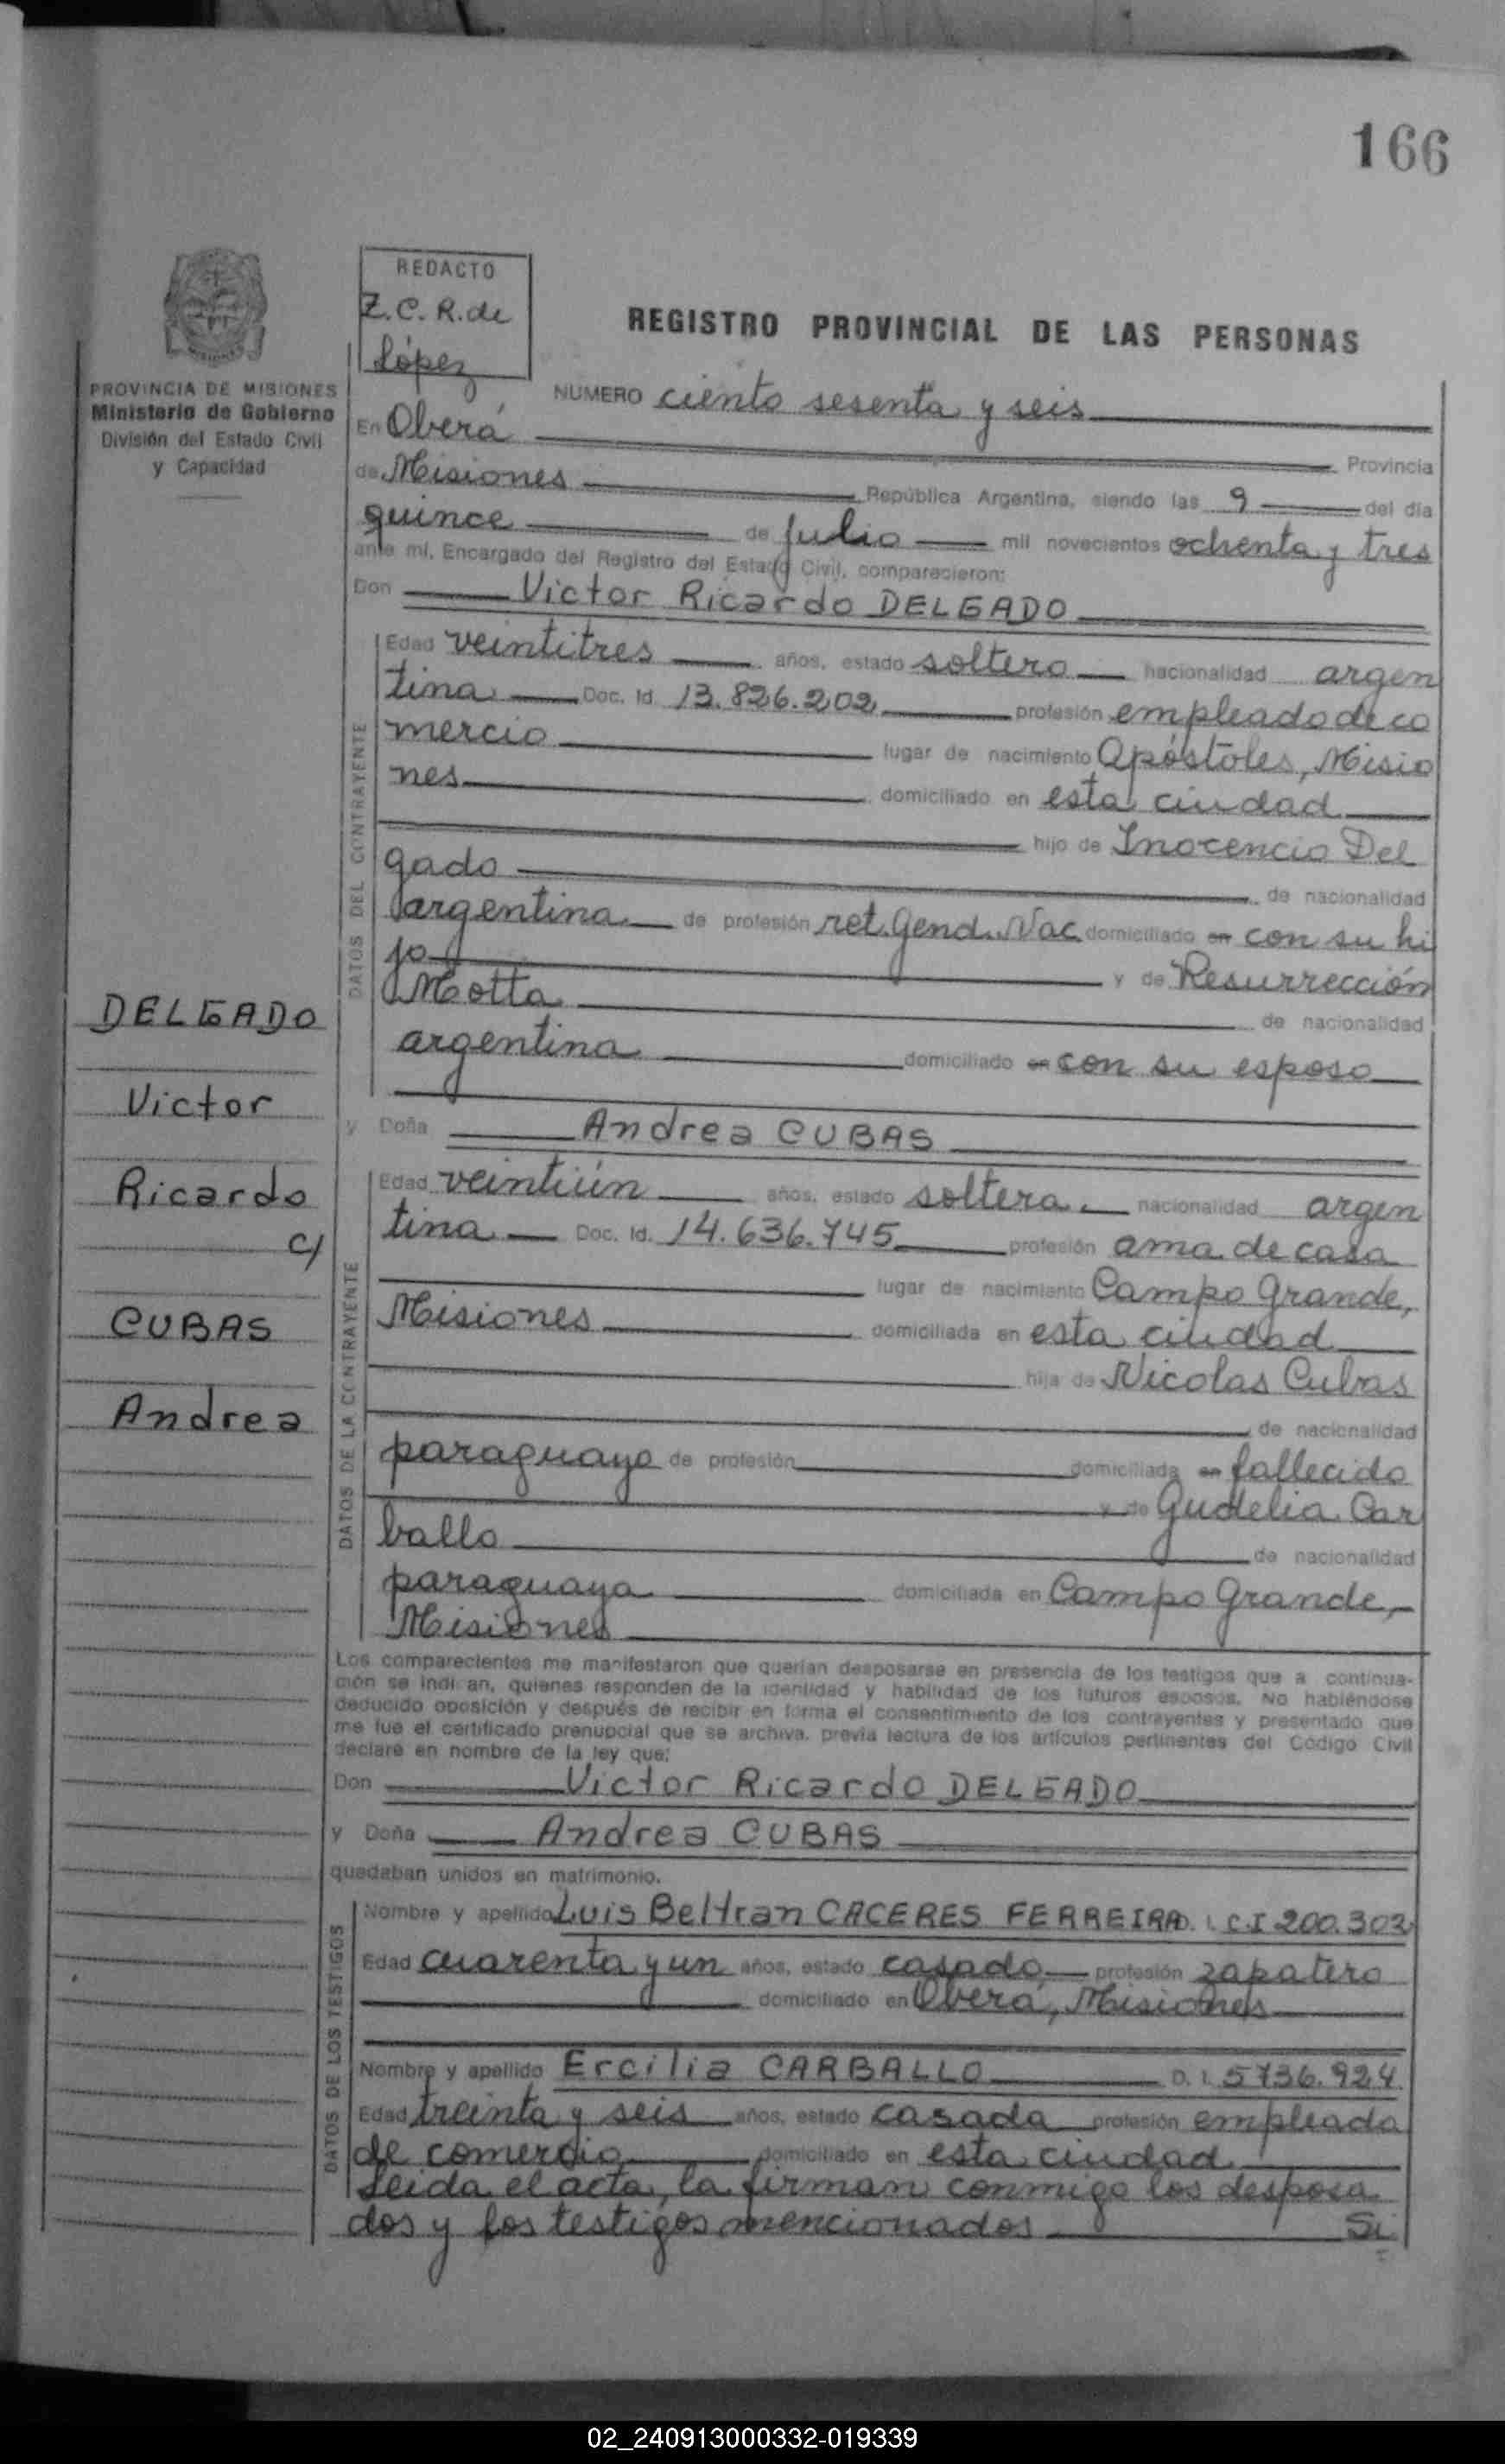 166
REDACTO
Z.C.R. de
López
REGISTRO PROVINCIAL DE LAS PERSONAS
PROVINCIA DE MISIONES
Ministerio de Gobierno
División del Estado Civil
y Capacidad
NUMERO ciento sesenta y seis
En Oberá Provincia
de Misiones República Argentina, siendo las 9 del día
quince de Julio mil novecientos ochenta y tres
ante mí, Encargado del Registro del Estado Civil, comparecieron:
Don Victor Ricardo DELGADO
DATOS DEL CONTRAYENTE
Edad veintitres años, estado soltero nacionalidad argen
tina Doc. Id. 13.826.202 profesión empleado de co
mercio lugar de nacimiento Apóstoles, Misio
nes domiciliado en esta ciudad
hijo de Inocencio Del
gado de nacionalidad
argentina de profesión ret. Gend. Nac. domiciliado en con su hi
jo y de Resurrección
Motta de nacionalidad
argentina domiciliado en con su esposo
y Doña Andrea CUBAS
DATOS DE LA CONTRAYENTE
Edad veintiún años, estado soltera nacionalidad argen
tina Doc. Id. 14.636.745 profesión ama de casa
lugar de nacimiento Campo Grande,
Misiones domiciliada en esta ciudad
hija de Nicolas Cubas
de nacionalidad
paraguayo de profesión domiciliada en fallecido
y de Gudelia Car
ballo de nacionalidad
paraguaya domiciliada en Campo Grande,
Misiones
DELGADO
Victor
Ricardo
c/
CUBAS
Andrea
Los comparecientes me manifestaron que querían desposarse en presencia de los testigos que a continua-
ción se indi an, quienes responden de la identidad y habilidad de los futuros esposos. No habiéndose
deducido oposición y después de recibir en forma el consentimiento de los contrayentes y presentado que
me fue el certificado prenupcial que se archiva, previa lectura de los artículos pertinentes del Código Civil
declaré en nombre de la ley que:
Don Victor Ricardo DELGADO
y Doña Andrea CUBAS
quedaban unidos en matrimonio.
DATOS DE LOS TESTIGOS
Nombre y apellido Luis Beltran CACERES FERREIRA D. I. C.I 200.302
Edad cuarenta y un años, estado casado profesión zapatero
domiciliado en Oberá, Misiones
Nombre y apellido Ercilia CARBALLO D. I. 5736.924
Edad treinta y seis años, estado casada profesión empleada
de comercio domiciliado en esta ciudad
Leida el acta, la firman conmigo los desposa
dos y los testigos mencionados Si
02_240913000332-019339